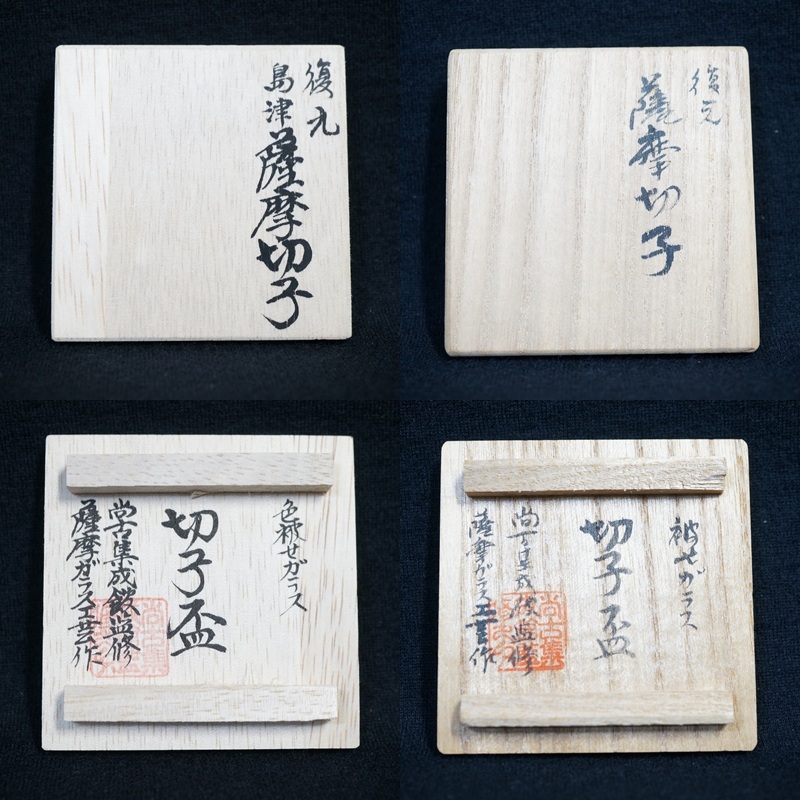 復元
島津
薩摩切子
復元
薩摩切子
色被せガラス
切子盃
尚古集成館監修
薩摩ガラス工芸作
尚古集
被せガラス
切子盃
尚古集成館監修
薩摩ガラス工芸作
尚古集